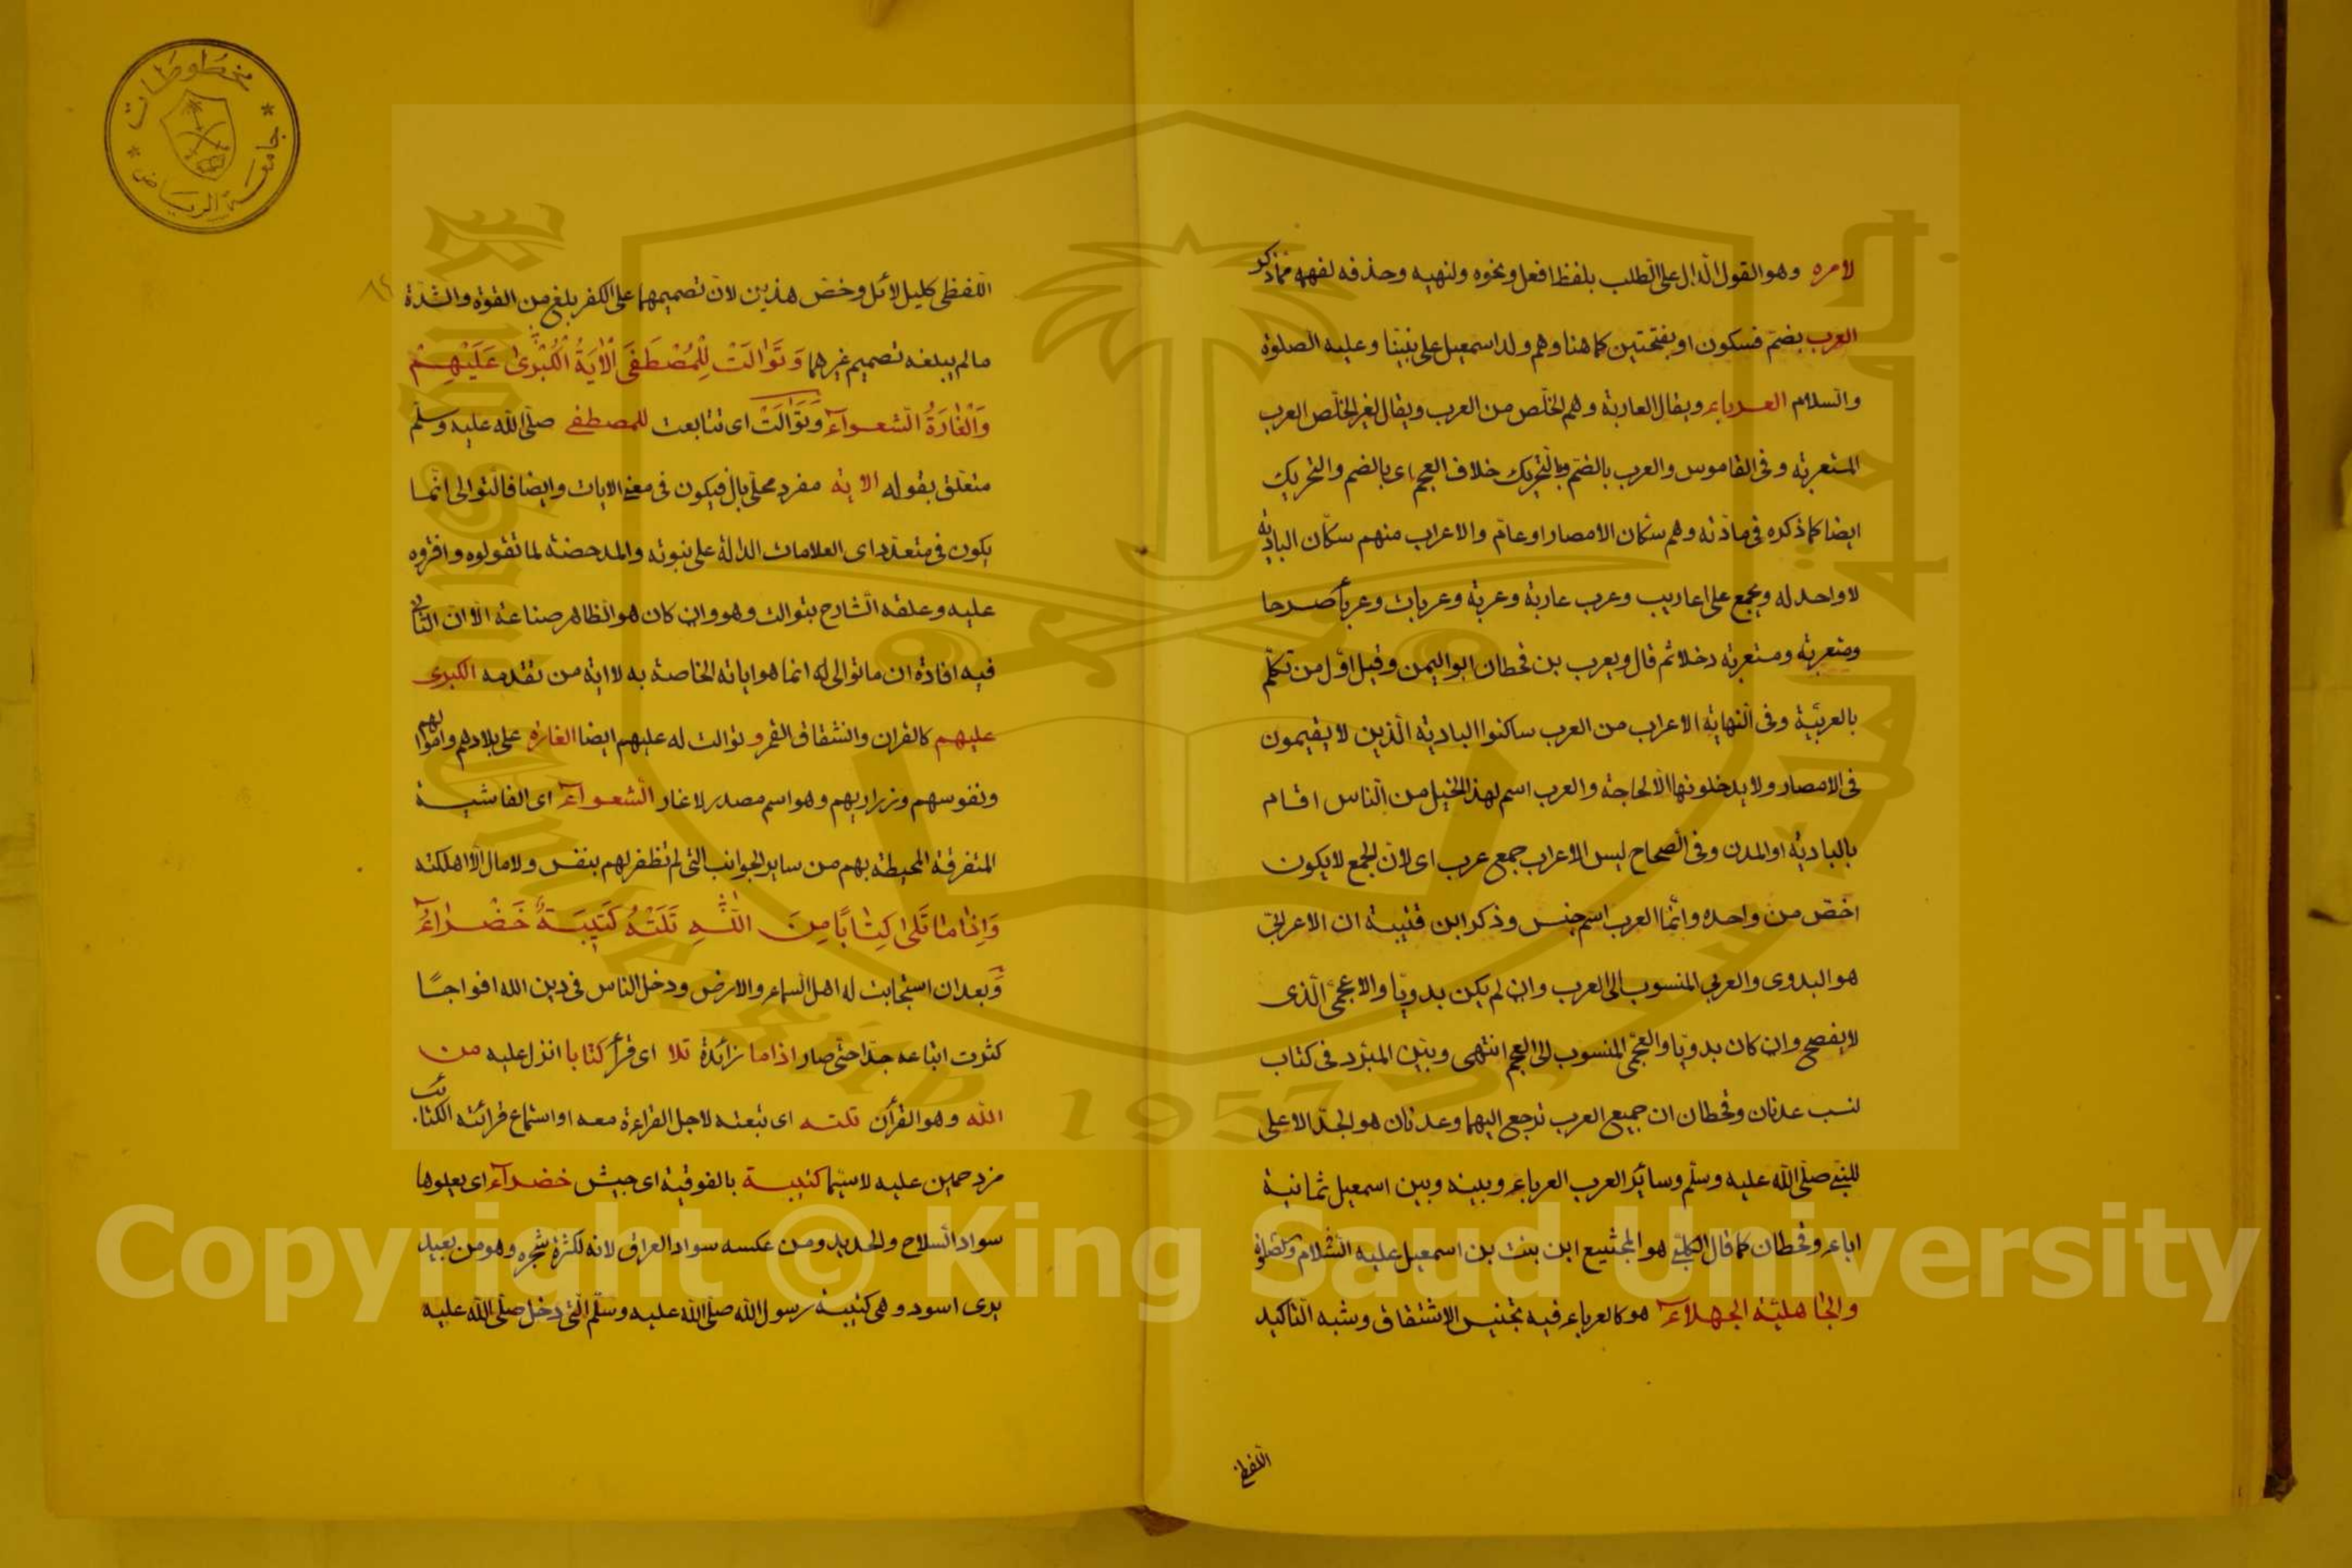 لامره وهو القول الدال على الطلب بلفظ افعل ونحوه ولنهيه وحذفه لفهمه مما ذكر
العرب بضم فسكون او بفتحتين كما هنا وهم ولد اسمعيل على نبينا وعليه الصلوة
والسلام العرباء ويقال العاربة وهم الخلص من العرب ويقال لغير الخلص العرب
المتعربة وفى القاموس والعرب بالضم وبالتحريك خلاف العجم اى بالضم والتحريك
ايضا كما ذكره فى مادته وهم سكان الامصار او عام والاعراب منهم سكان البادية
لا واحد له ويجمع على اعاريب وعرب عاربة وعربة وعربات وعرباً صرحا
ومتعربة ومستعربة دخلا ثم قال ويعرب بن قحطان ابو اليمن وقيل اول من تكلم
بالعربية وفى النهاية الاعراب من العرب ساكنوا البادية الذين لا يقيمون
فى الامصار ولا يدخلونها الا لحاجة والعرب اسم لهذا الخيل من الناس اقام
بالبادية او المدن وفى الصحاح ليس الاعراب جمع عرب اى لان الجمع لا يكون
اخص من واحده وانما العرب اسم جنس وذكر ابن قتيبة ان الاعرابى
هو البدوى والعربى المنسوب الى العرب وان لم يكن بدويا والاعجمى الذى
لا يفصح وان كان بدويا والعجمى المنسوب الى العجم انتهى وبين المبرد فى كتاب
نسب عدنان وقحطان ان جميع العرب ترجع اليهما وعدنان هو الجد الاعلى
للنبى صلى الله عليه وسلم وسائر العرب العرباء وبينه وبين اسمعيل ثمانية
اباء وقحطان كما قال الكلبى هو ابن بنت بن اسمعيل عليه السلام والصلوة
والجاهلية الجهلاء هو كالعرباء فيه تجنيس الاشتقاق وشبه التاكيد
اللفظى
اللفظى كليل لائل وخص هذين لان تصميمهما على الكفر بلغ من القوة والشدة
ما لم يبلغه تصميم غيرهما وَتَوَالَتْ لِلْمُصْطَفَى الْاٰيَةُ الْكُبْرٰى عَلَيْهِمْ
وَالْغَارَةُ الشعواء وتَوَالَتْ اى تتابعت للمصطفى صلى الله عليه وسلم
متعلق بقوله الاية مفرد محلى بال فيكون فى معنى الايات وايضا فالتوالى انما
يكون فى متعدد اى العلامات الدالة على نبوته والمدحضة لما تقولوه وافتروه
عليه وعلقه الشارح بتوالت وهو وان كان هو الظاهر صناعة الا ان الثانى
فيه افادة ان ما توالى له انما هو اياته الخاصة به لا اية من تقدمه الكبرى
عليهم كالقران وانشقاق القمر و توالت له عليهم ايضا الغارة على بلادهم واموالهم
ونفوسهم وزراريهم وهو اسم مصدر لاغار الشعواء اى الفاشية
المتفرقة المحيطة بهم من ساير الجوانب التى لم تظفر لهم بنفس ولا مال الا اهلكته
وَاِذَا مَا تَلٰى كِتَابًا مِنَ اللّٰهِ تَلَتْهُ كَتِيبَةٌ خَضْرَاءُ
وَ بعد ان استجابت له اهل السماء والارض ودخل الناس فى دين الله افواجًا
كثرت اتباعه جدا حتى صار اذا ما زائدة تلا اى قرأ كتابا انزل عليه من
الله وهو القرآن تلته اى تبعته لاجل القراءة معه او استماع قرائته الكتائب
مزدحمين عليه لا سيما كتيبة بالفوقية اى جيش خضراء اى يعلوها
سواد السلاح والحديد ومن عكسه سواد العراق لانه لكثرة شجره وهو من بعيد
يرى اسود وهى كتيبة رسول الله صلى الله عليه وسلم التى دخل صلى الله عليه
مخطوطات
جامعة الرياض
King Saud University
1957
Copyright © King Saud University